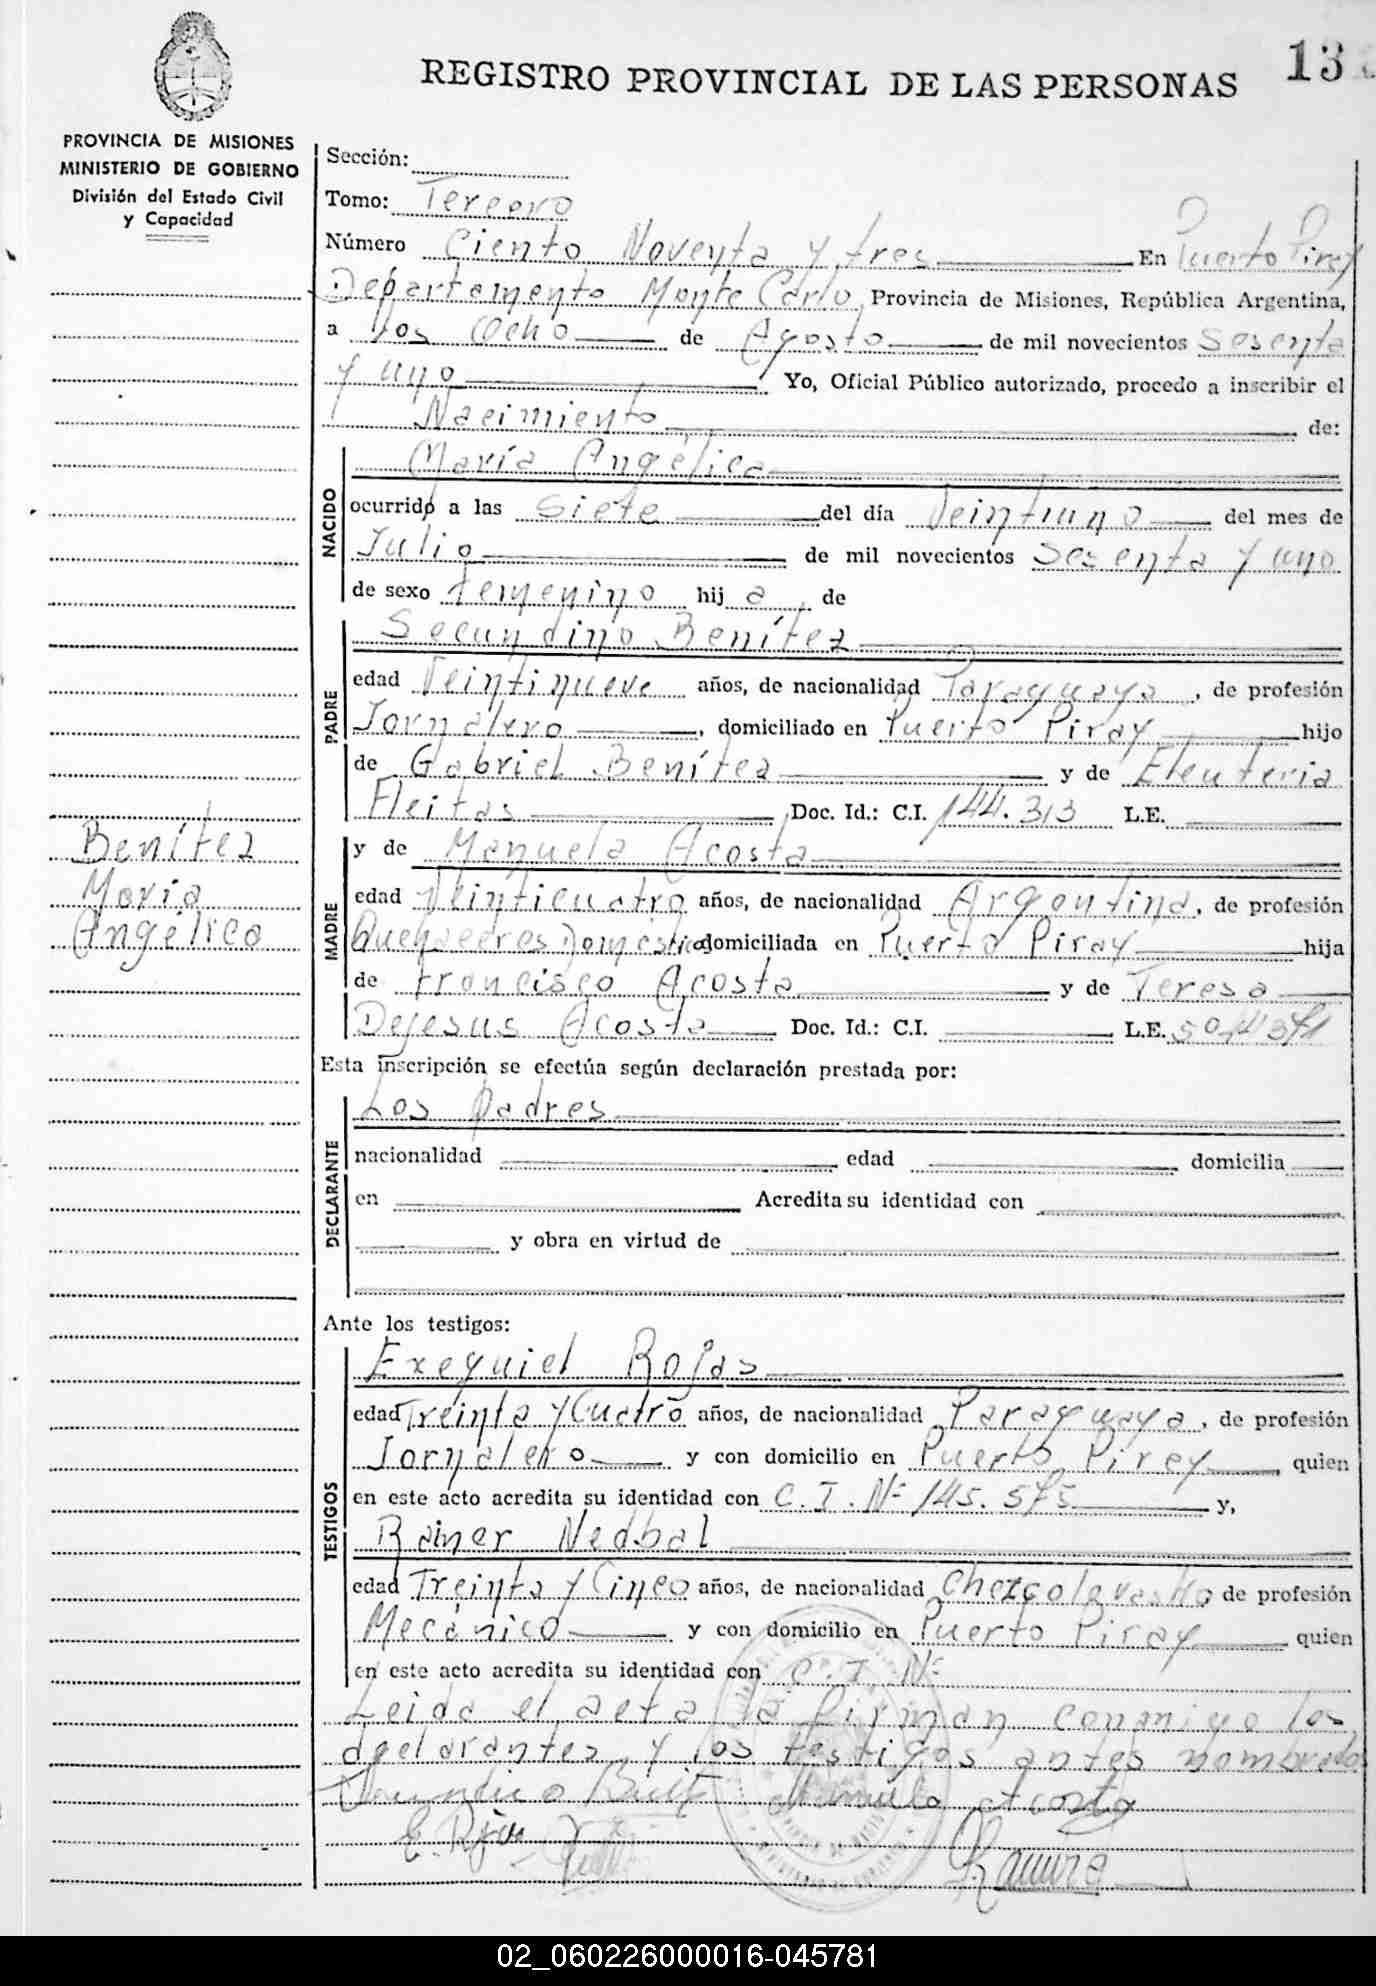 REGISTRO PROVINCIAL DE LAS PERSONAS
13
PROVINCIA DE MISIONES
MINISTERIO DE GOBIERNO
División del Estado Civil
y Capacidad
Sección:
Tomo: Tercero
Número Ciento Noventa y tres En Puerto Piray
Departamento Monte Carlo, Provincia de Misiones, República Argentina,
a los Ocho de Agosto de mil novecientos Sesenta
y uno Yo, Oficial Público autorizado, procedo a inscribir el
Nacimiento de:
NACIDO
María Angélica
ocurrido a las Siete del día Veintiuno del mes de
Julio de mil novecientos Sesenta y uno
de sexo femenino hij a, de
PADRE
Secundino Benítez
edad Veintinueve años, de nacionalidad Paraguaya, de profesión
Jornalero, domiciliado en Puerto Piray hijo
de Gabriel Benítez y de Eleuteria
Fleitas Doc. Id.: C.I. 144.313 L.E.
Benítez
María
Angélica
MADRE
y de Manuela Acosta
edad Veinticuatro años, de nacionalidad Argentina, de profesión
Quehaceres Domésticos domiciliada en Puerto Piray hija
de Francisco Acosta y de Teresa
Dejesus Acosta Doc. Id.: C.I. L.E.
Esta inscripción se efectúa según declaración prestada por:
DECLARANTE
Los Padres
nacionalidad edad domicilia
en Acredita su identidad con
y obra en virtud de
Ante los testigos:
TESTIGOS
Exequiel Rojas
edad Treinta y Cuatro años, de nacionalidad Paraguaya, de profesión
Jornalero y con domicilio en Puerto Piray quien
en este acto acredita su identidad con C.I. Nº 145.575 y,
Rainer Nedbal
edad Treinta y Cinco años, de nacionalidad Checoslovasko de profesión
Mecánico y con domicilio en Puerto Piray quien
en este acto acredita su identidad con C.I. Nº
Leida el acta la firman conmigo los
declarantes y los testigos antes nombrados
Manuela Acosta
E. Rojas
02_060226000016-045781